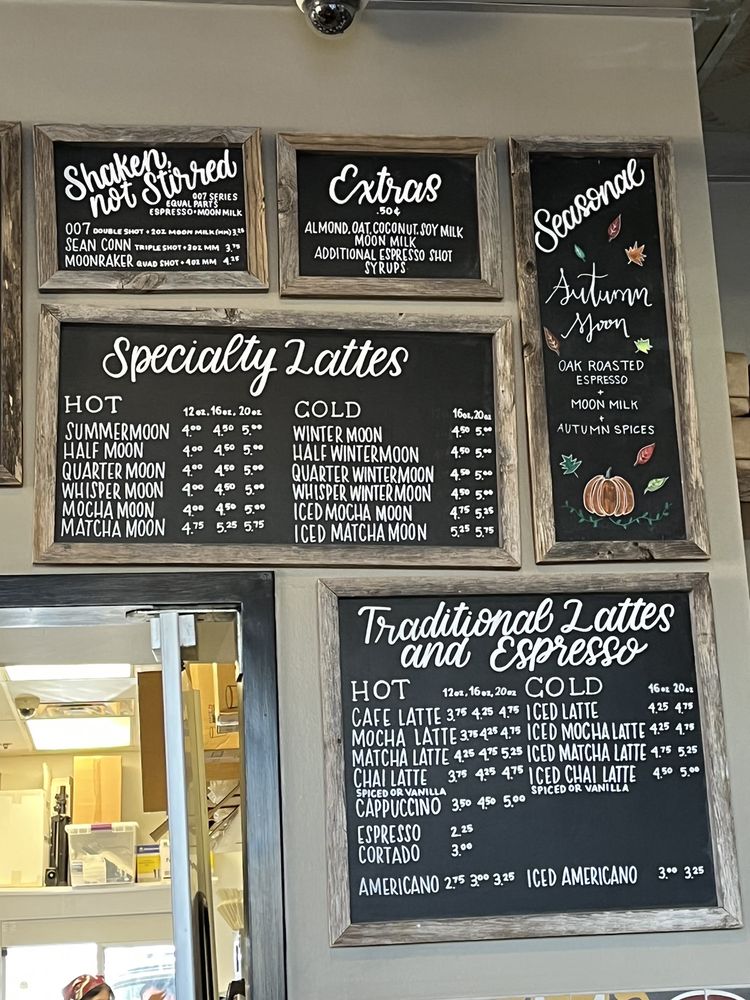 Shaken,
not Stirred
007 SERIES
EQUAL PARTS
ESPRESSO+MOON MILK
007 DOUBLE SHOT + 2OZ MOON MILK(MM) 3.25
SEAN CONN TRIPLE SHOT + 3OZ MM 3.75
MOONRAKER QUAD SHOT + 4OZ MM 4.25
Extras
.50¢
ALMOND, OAT, COCONUT, SOY MILK
MOON MILK
ADDITIONAL ESPRESSO SHOT
SYRUPS
Seasonal
Autumn
Moon
OAK ROASTED
ESPRESSO
+
MOON MILK
+
AUTUMN SPICES
Specialty Lattes
HOT 12oz, 16oz, 20oz
SUMMERMOON 4.00 4.50 5.00
HALF MOON 4.00 4.50 5.00
QUARTER MOON 4.00 4.50 5.00
WHISPER MOON 4.00 4.50 5.00
MOCHA MOON 4.00 4.50 5.00
MATCHA MOON 4.75 5.25 5.75
COLD 16oz, 20oz
WINTER MOON 4.50 5.00
HALF WINTERMOON 4.50 5.00
QUARTER WINTERMOON 4.50 5.00
WHISPER WINTERMOON 4.50 5.00
ICED MOCHA MOON 4.75 5.25
ICED MATCHA MOON 5.25 5.75
Traditional Lattes
and Espresso
HOT 12oz, 16oz, 20oz
CAFE LATTE 3.75 4.25 4.75
MOCHA LATTE 3.75 4.25 4.75
MATCHA LATTE 4.25 4.75 5.25
CHAI LATTE 3.75 4.25 4.75
SPICED OR VANILLA
CAPPUCCINO 3.50 4.50 5.00
ESPRESSO 2.25
CORTADO 3.00
AMERICANO 2.75 3.00 3.25
COLD 16oz 20oz
ICED LATTE 4.25 4.75
ICED MOCHA LATTE 4.25 4.75
ICED MATCHA LATTE 4.75 5.25
ICED CHAI LATTE 4.50 5.00
SPICED OR VANILLA
ICED AMERICANO 3.00 3.25